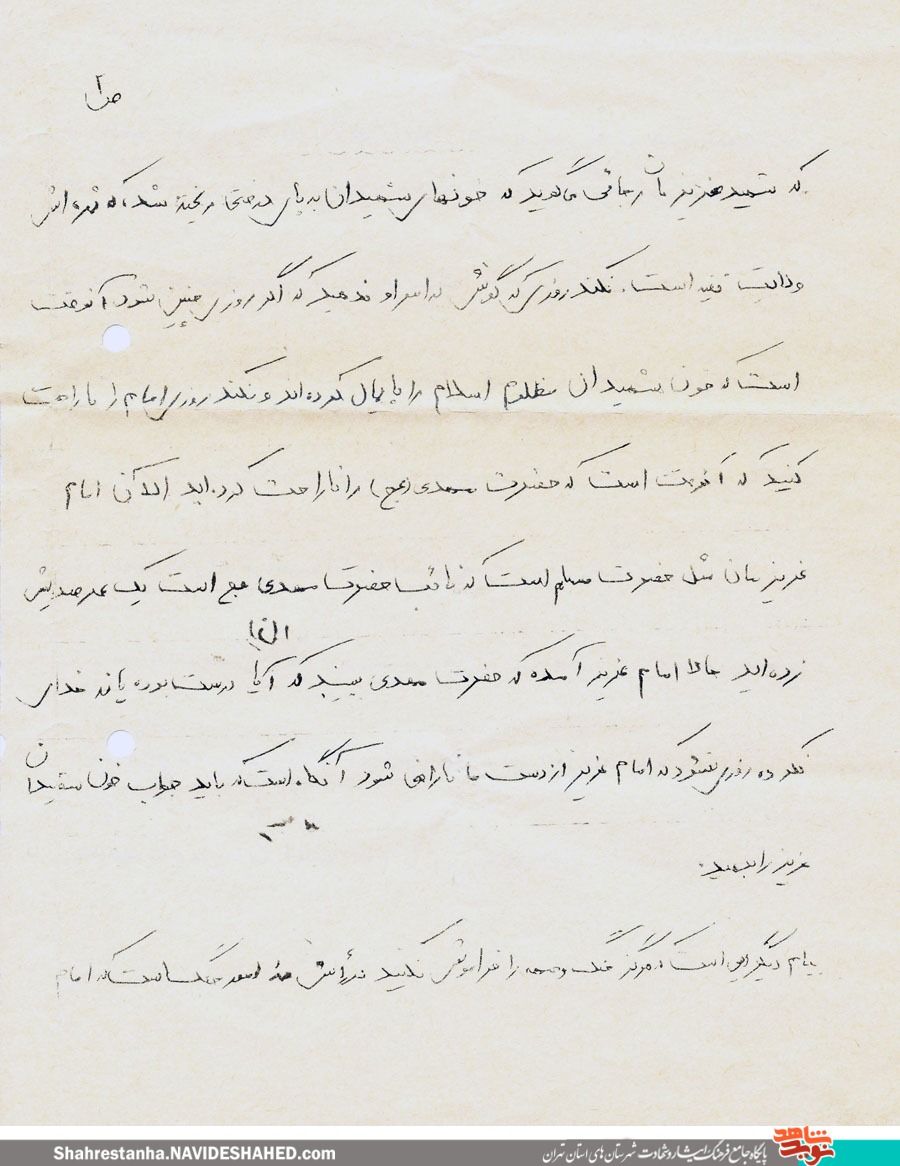 ص ۲
که شهید عزیزمان رجائی میگوید که خونهای شهیدان به پای درختی ریخته شد، که ثمره اش
ولایت فقیه است. نکند روزی که گوش به امر او ندهید که اگر روزی چنین شود آنوقت
است که خون شهیدان مظلوم اسلام را پایمال کرده‌اند و نکند روزی امام را ناراحت
کنید که آنوقت است که حضرت مهدی (عج) را ناراحت کرده اید الآن امام
عزیزمان مثل حضرت مسلم است که نائب حضرت مهدی عج است یک عمر صدایش
زده اید حالا امام عزیز آمده که حضرت مهدی ببیند که آیا درست بوده یا نه خدای
نکرده روزی نشود که امام عزیز از دست ما ناراضی شود آنگاه است که باید جواب خون شهیدان
عزیز را بدهید.
پیام دیگر این است که هرگز جنگ و جبهه را فراموش نکنید در رأس امور جنگ است که امام
Shahrestanha.NAVIDESHAHED.com
پایگاه جامع فرهنگ ایثار و شهادت شهرستان های استان تهران
نوید شاهد